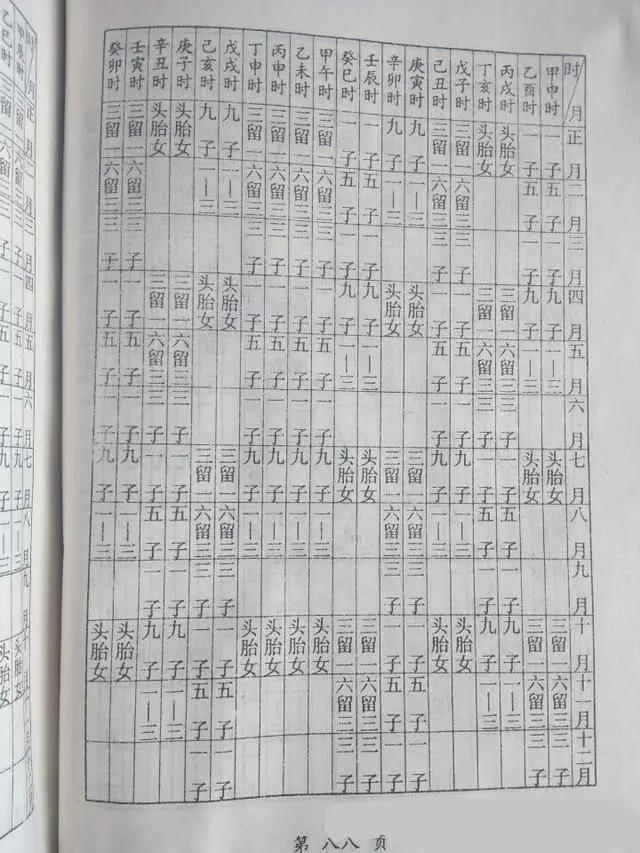 时/月 正月 二月 三月 四月 五月 六月 七月 八月 九月 十月 十一月 十二月
甲申时 一子 五子 一子 九子 一—三 头胎女 三留一 六留三 三子
乙酉时 一子 五子 一子 九子 一—三 头胎女 三留一 六留三 三子
丙戌时 头胎女 三留一 六留三 三子 一子 五子 一子 九子 一—三
丁亥时 头胎女 三留一 六留三 三子 一子 五子 一子 九子 一—三
戊子时 三留一 六留三 三子 一子 五子 一子 九子 一—三 头胎女
己丑时 三留一 六留三 三子 一子 五子 一子 九子 一—三 头胎女
庚寅时 九子 一—三 头胎女 三留一 六留三 三子 一子 五子 一子
辛卯时 九子 一—三 头胎女 三留一 六留三 三子 一子 五子 一子
壬辰时 一子 五子 一子 九子 一—三 头胎女 三留一 六留三 三子
癸巳时 一子 五子 一子 九子 一—三 头胎女 三留一 六留三 三子
甲午时 三留一 六留三 三子 一子 五子 一子 九子 一—三 头胎女
乙未时 三留一 六留三 三子 一子 五子 一子 九子 一—三 头胎女
丙申时 三留一 六留三 三子 一子 五子 一子 九子 一—三 头胎女
丁申时 三留一 六留三 三子 一子 五子 一子 九子 一—三 头胎女
戊戌时 九子 一—三 头胎女 三留一 六留三 三子 一子 五子 一子
己亥时 九子 一—三 头胎女 三留一 六留三 三子 一子 五子 一子
庚子时 头胎女 三留一 六留三 三子 一子 五子 一子 九子 一—三
辛丑时 头胎女 三留一 六留三 三子 一子 五子 一子 九子 一—三
壬寅时 三留一 六留三 三子 一子 五子 一子 九子 一—三 头胎女
癸卯时 三留一 六留三 三子 一子 五子 一子 九子 一—三 头胎女
第八八页
时/月 正月
甲辰时
乙巳时